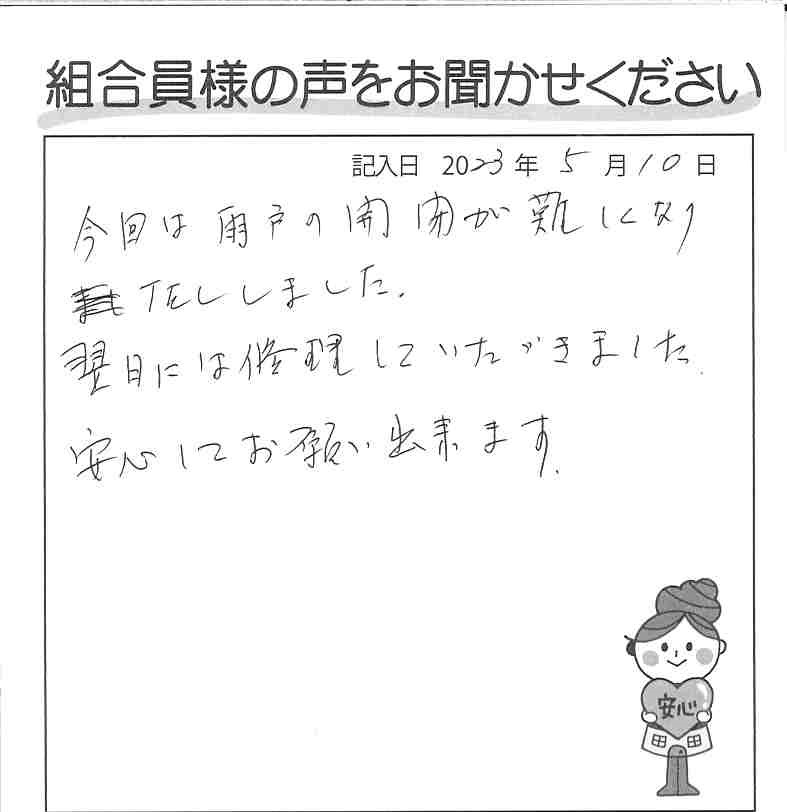 組合員様の声をお聞かせください
記入日 2023年 5月10日
今回は雨戸の開閉が難しくなり
致ししました.
翌日には修理していただきました.
安心してお願い出来ます.
安心